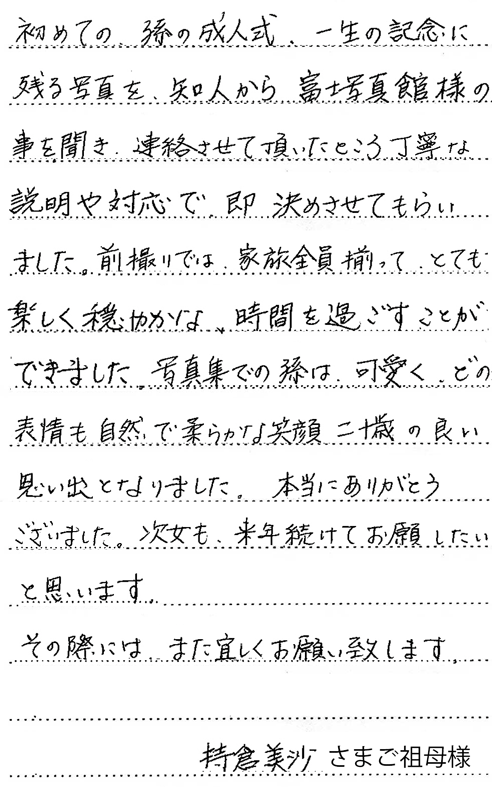 初めての、孫の成人式、一生の記念に
残る写真を、知人から 富士写真館様の
事を聞き、連絡させて頂いたところ丁寧な
説明や対応で、即 決めさせてもらい
ました。前撮りでは、家族全員揃って、とても
楽しく穏やかな、時間を過ごすことが
できました。写真集での孫は、可愛く、どの
表情も自然で柔らかな笑顔 二十歳の良い
思い出となりました。 本当にありがとう
ございました。次女も、来年続けてお願したい
と思います。
その際には、また宜しくお願い致します。
持倉美沙 さまご祖母様